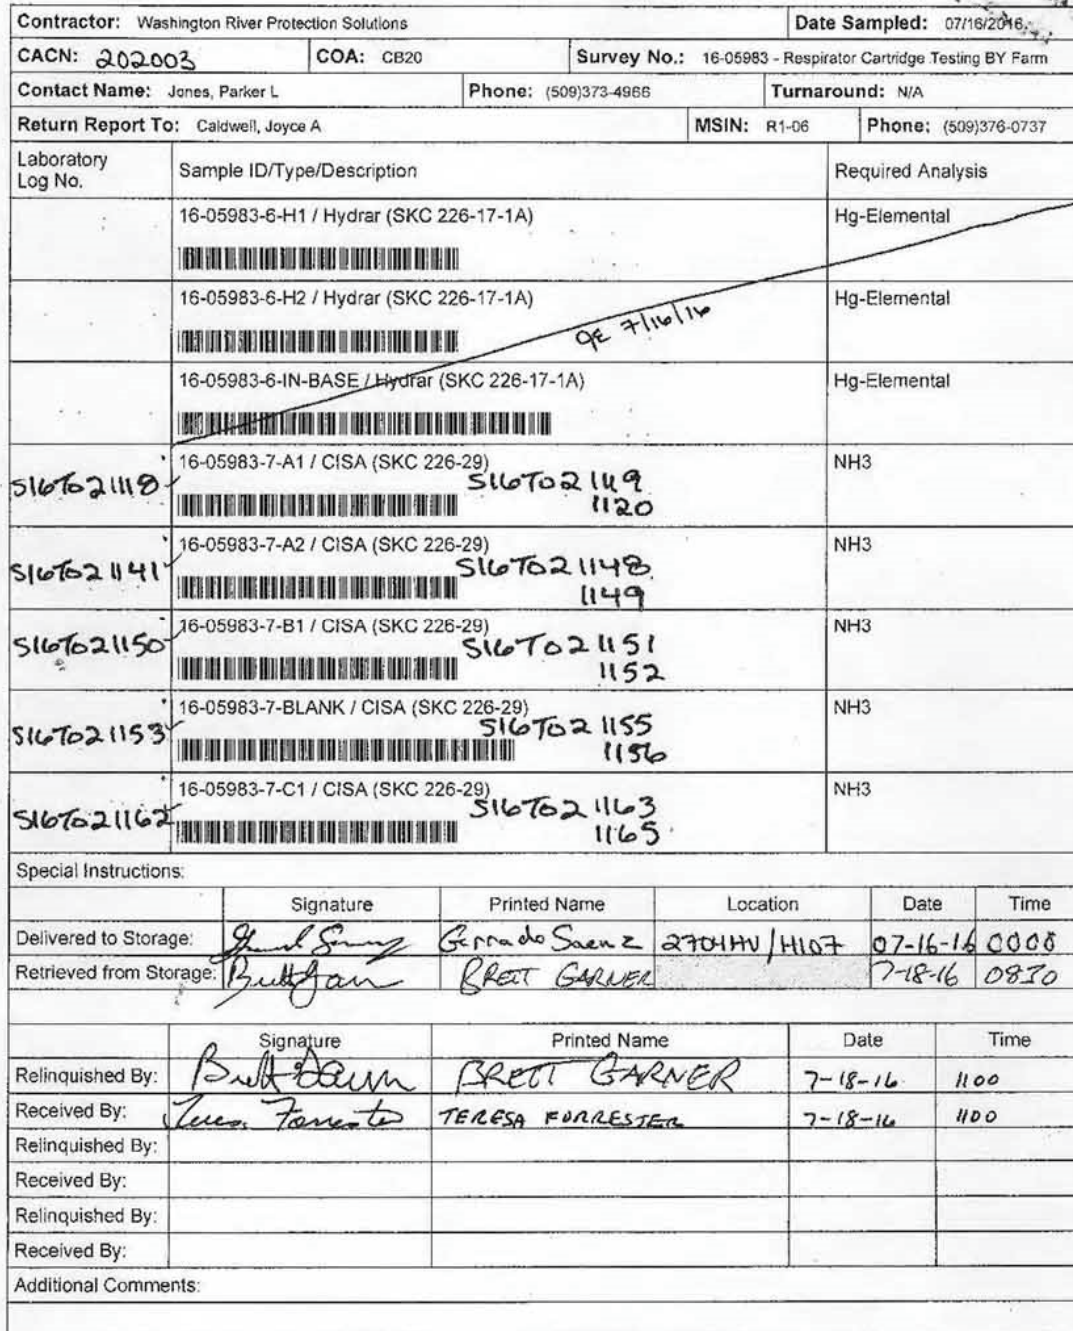 Contractor: Washington River Protection Solutions Date Sampled: 07/16/2016
CACN: 202003 COA: CB20 Survey No.: 16-05983 - Respirator Cartridge Testing BY Farm
Contact Name: Jones, Parker L Phone: (509)373-4966 Turnaround: N/A
Return Report To: Caldwell, Joyce A MSIN: R1-06 Phone: (509)376-0737
Laboratory Log No. Sample ID/Type/Description Required Analysis
16-05983-6-H1 / Hydrar (SKC 226-17-1A) Hg-Elemental
16-05983-6-H2 / Hydrar (SKC 226-17-1A) Hg-Elemental
7/16/16
16-05983-6-IN-BASE / Hydrar (SKC 226-17-1A) Hg-Elemental
16-05983-7-A1 / CISA (SKC 226-29) NH3
S16T021118 S16T021119
1120
16-05983-7-A2 / CISA (SKC 226-29) NH3
S16T021141 S16T021148
1149
16-05983-7-B1 / CISA (SKC 226-29) NH3
S16T021150 S16T021151
1152
16-05983-7-BLANK / CISA (SKC 226-29) NH3
S16T021153 S16T021155
1156
16-05983-7-C1 / CISA (SKC 226-29) NH3
S16T021162 S16T021163
1165
Special Instructions:
Signature Printed Name Location Date Time
Delivered to Storage: Gerrado Saenz 2704HV/H107 07-16-16 0000
Retrieved from Storage: BRETT GARNER 7-18-16 0830
Signature Printed Name Date Time
Relinquished By: BRETT GARNER 7-18-16 1100
Received By: Teresa Forrester TERESA FORRESTER 7-18-16 1100
Relinquished By:
Received By:
Relinquished By:
Received By:
Additional Comments: